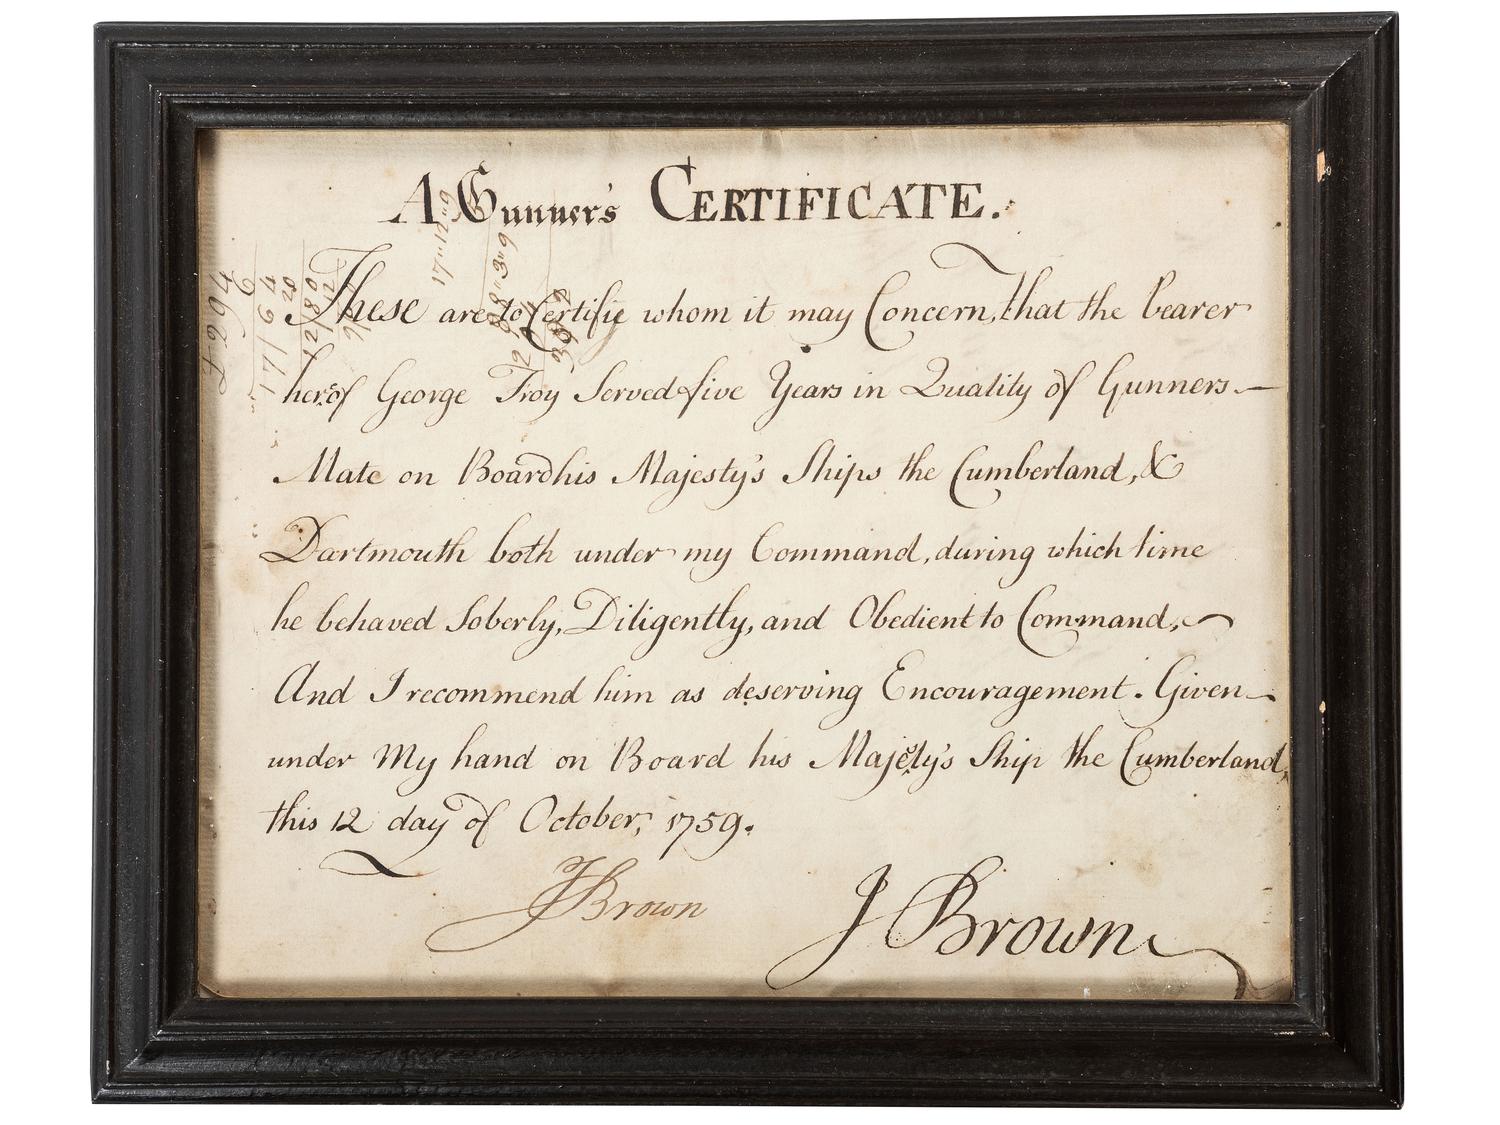 A Gunner's CERTIFICATE.
These are to Certifie whom it may Concern, that the bearer
hereof George Troy Served five Years in Quality of Gunners
Mate on Board his Majesty's Ships the Cumberland, &
Dartmouth both under my Command, during which time
he behaved Soberly, Diligently, and Obedient to Command,
And I recommend him as deserving Encouragement. Given
under My hand on Board his Majesty's Ship the Cumberland,
this 12 day of October, 1759.
J Brown
J Brown
17"12"9
£294
6